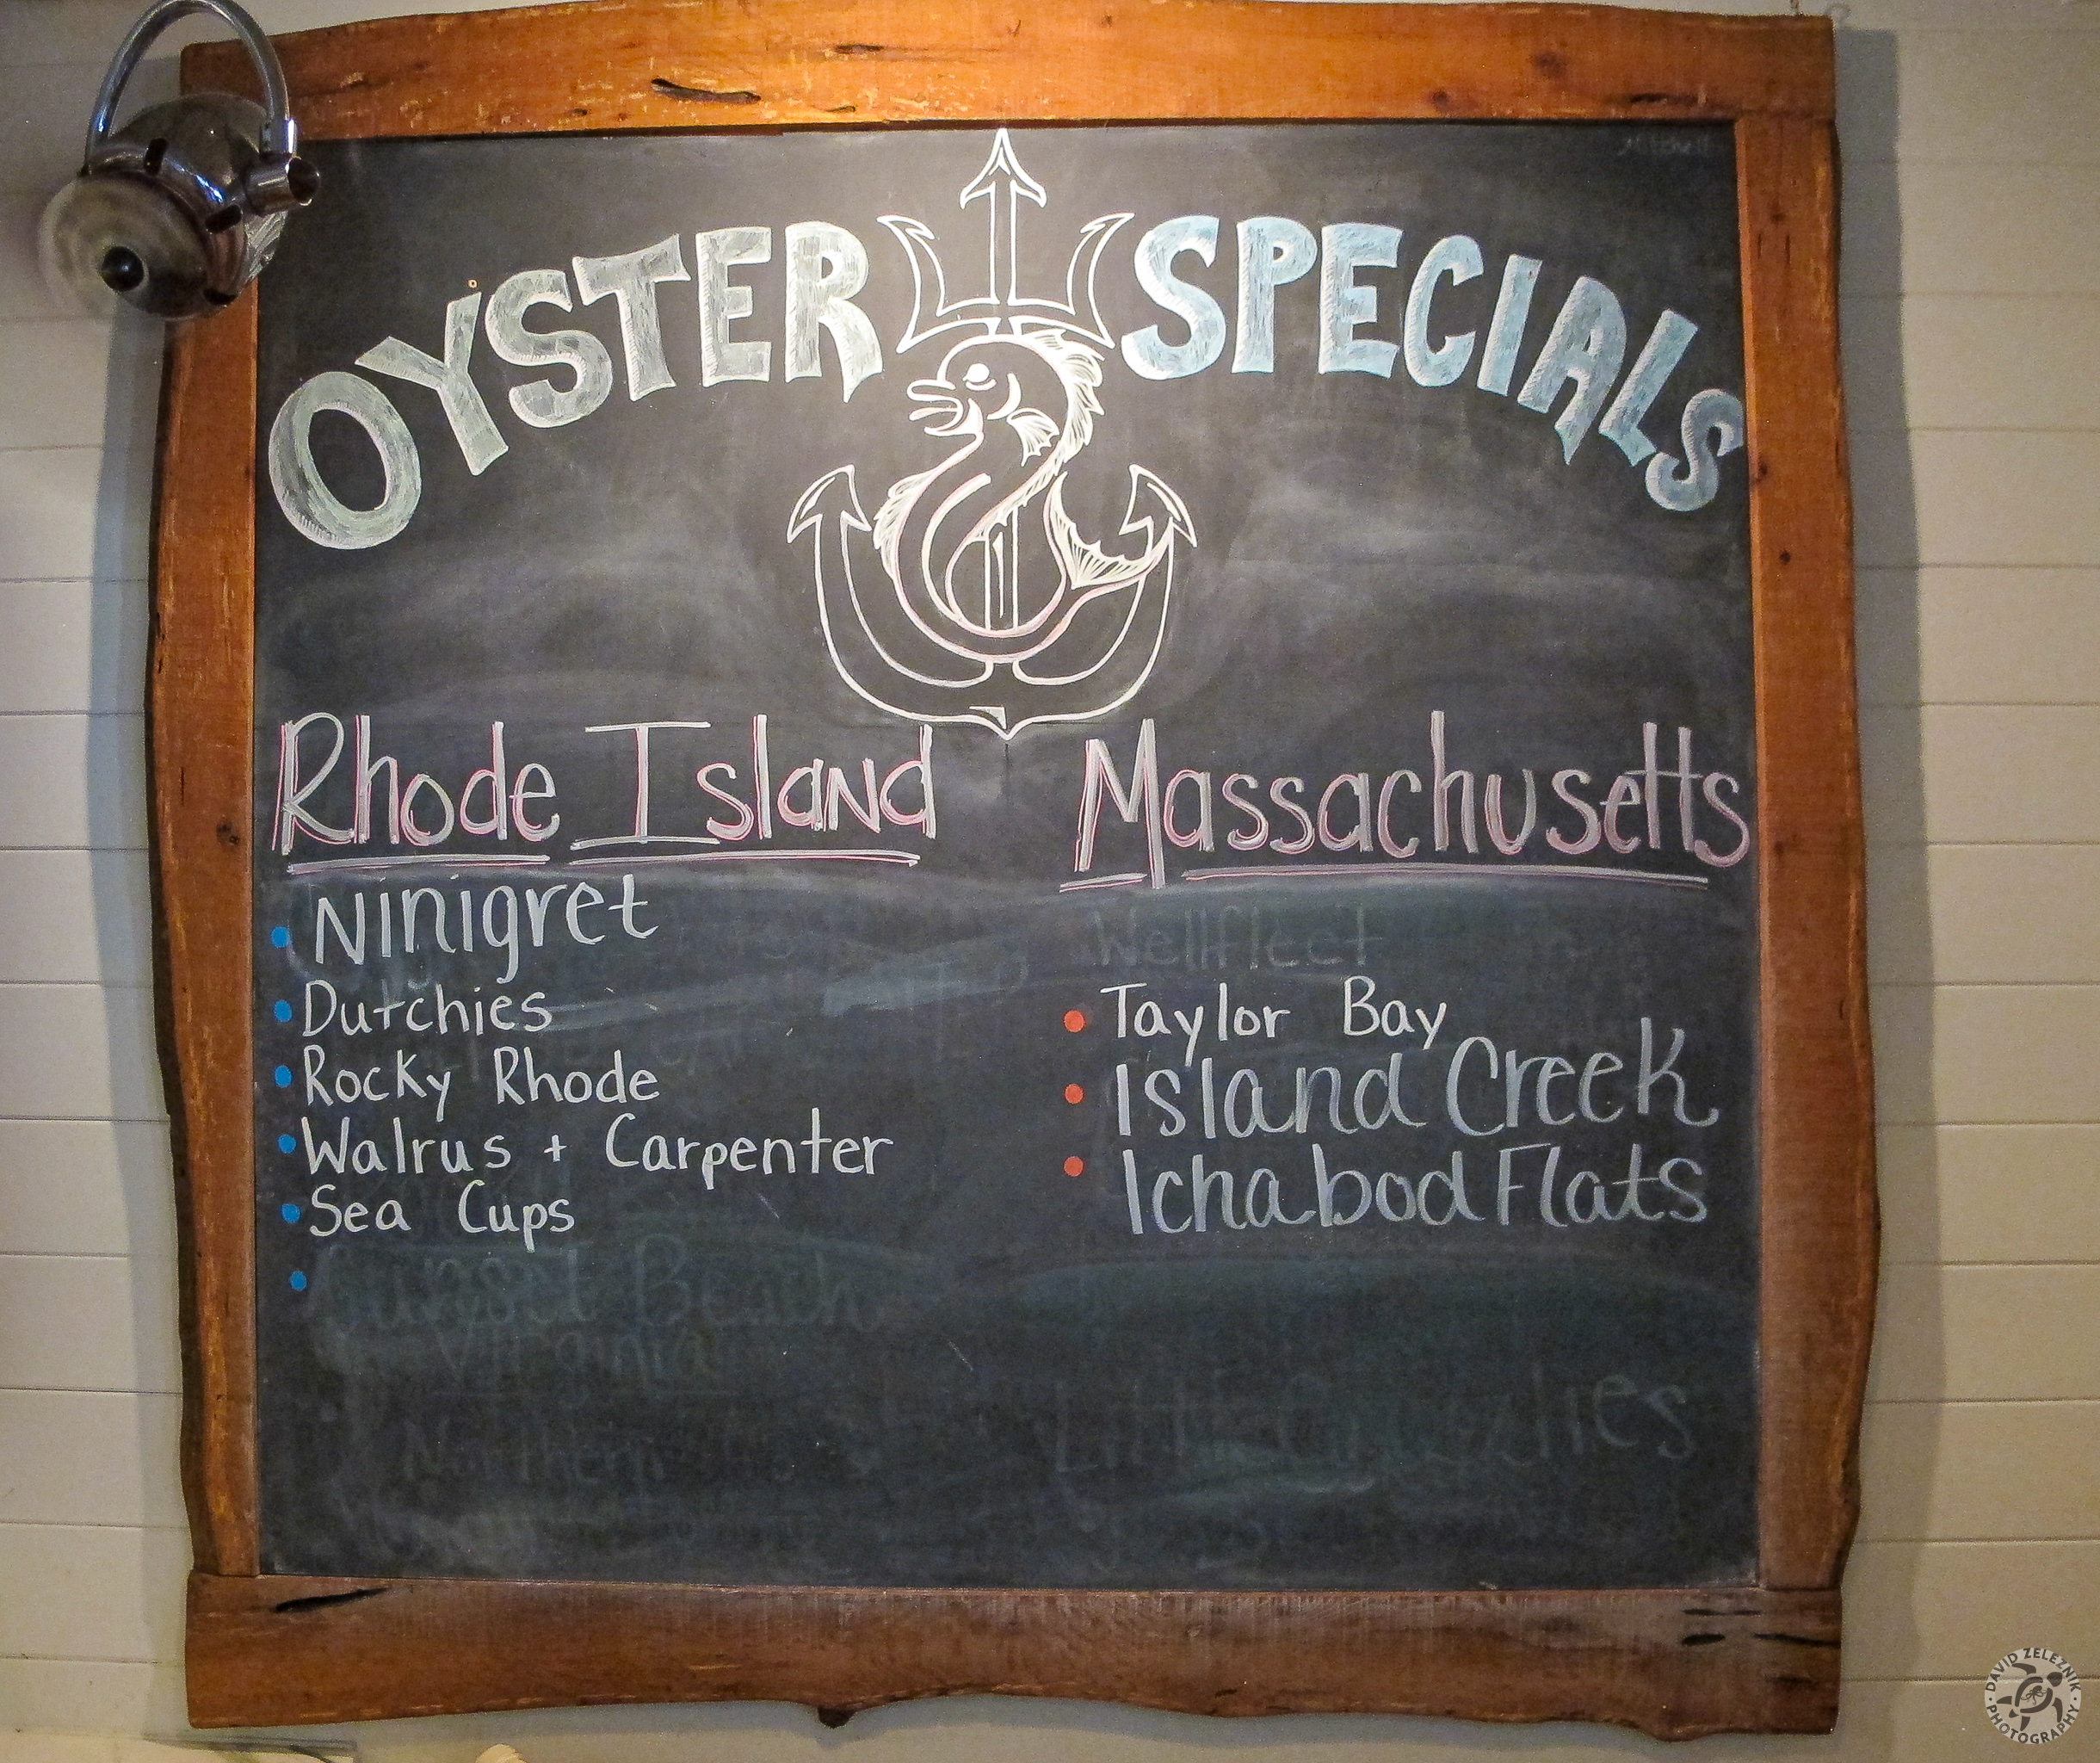 OYSTER SPECIALS
Rhode Island
Ninigret
Dutchies
Rocky Rhode
Walrus + Carpenter
Sea Cups
Beach
Virginia
Northern
Massachusetts
Wellfleet
Taylor Bay
Island Creek
Ichabod Flats
Little
DAVID ZELEZNIK
PHOTOGRAPHY